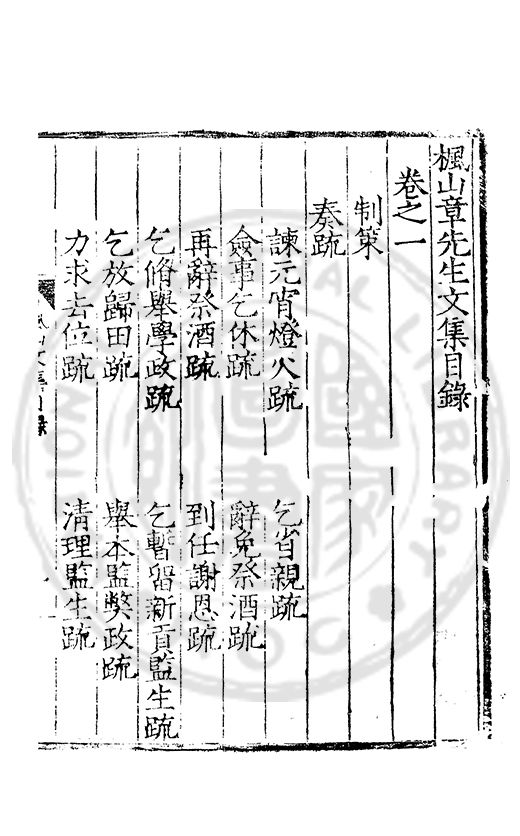 楓山章先生文集目錄
卷之一
制策
奏疏
諫元宵燈火疏　乞省親疏
僉事乞休疏　辭免祭酒疏
再辭祭酒疏　到任謝恩疏
乞脩舉學政疏　乞暫留新貢監生疏
乞放歸田疏　舉本監獘政疏
力求去位疏　清理監生疏